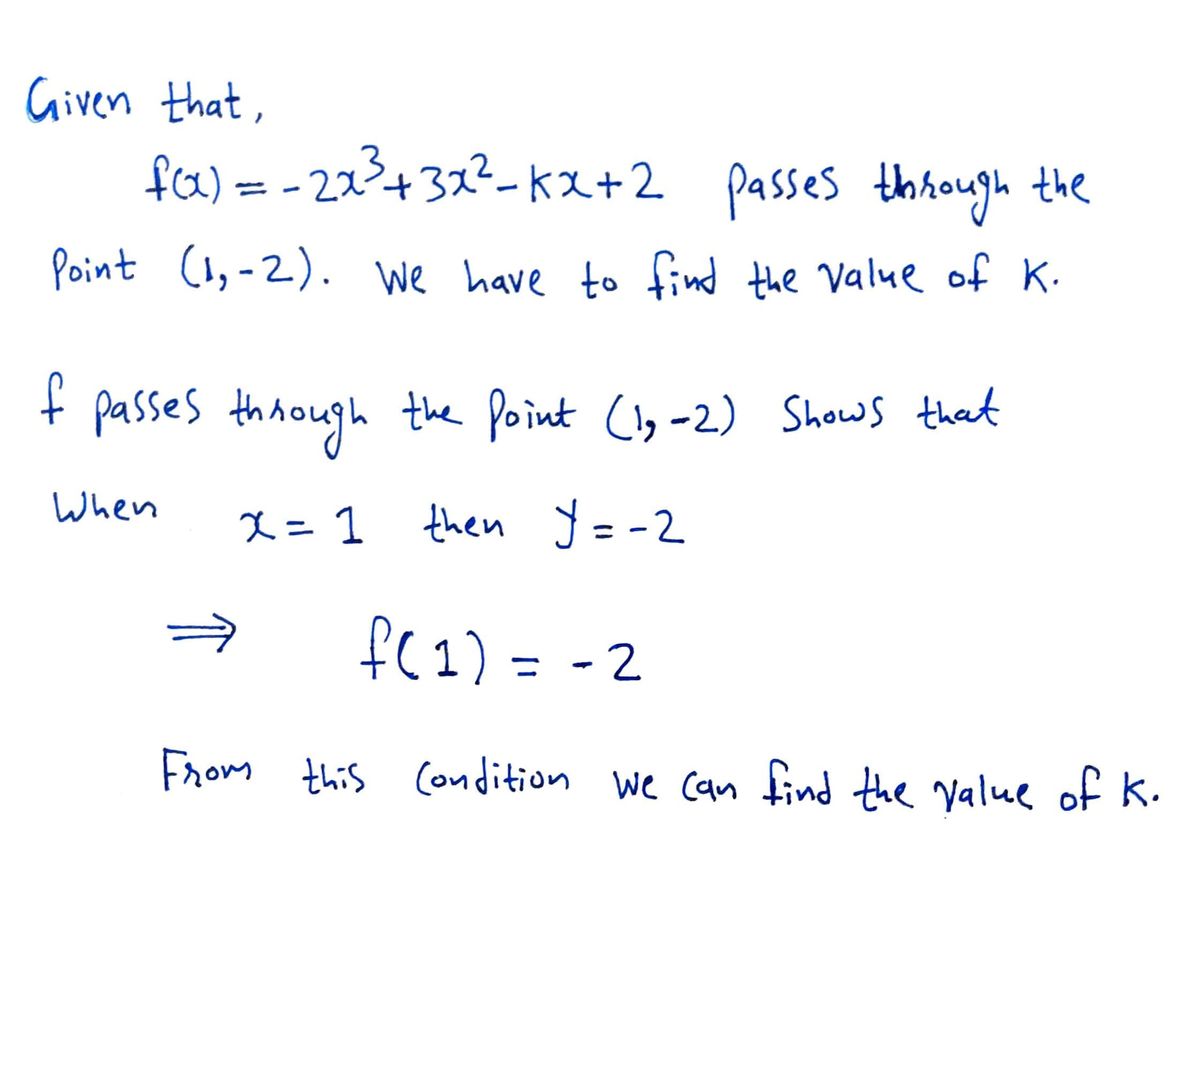 Given that,
f(x) = -2x³+3x²-kx+2 passes through the
Point (1,-2). We have to find the value of K.
f passes through the Point (1,-2) Shows that
When x = 1 then y = -2
⇒ f(1) = -2
From this Condition we can find the value of K.